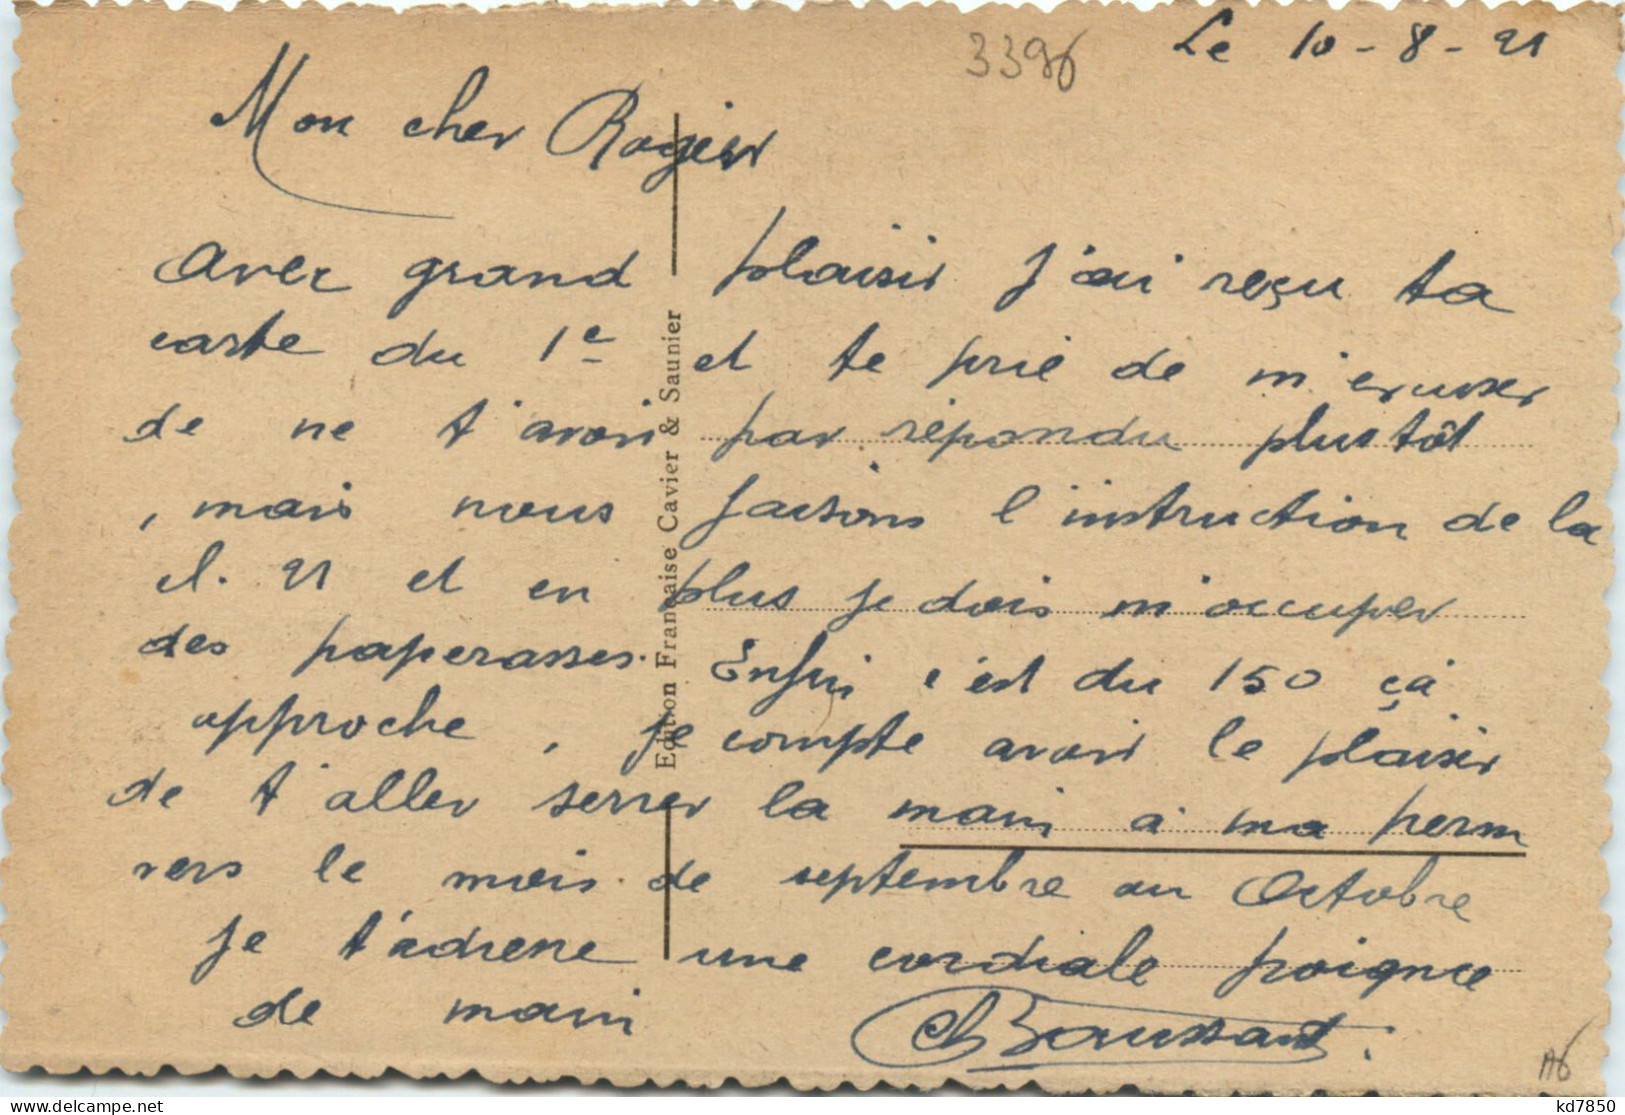 3396
Le 10-8-51
Mon cher Roger
Avec grand plaisir j'ai reçu ta
carte du 1e et te prie de m'excuser
de ne t'avoir par répondu plustôt
, mais nous faisons l'instruction de la
cl. 51 et en plus je dois m'occuper
des paperasses. Enfin c'est du 150 çà
approche, je compte avoir le plaisir
de t'aller serrer la main à ma perm
vers le mois de septembre ou Octobre
je t'adresse une cordiale poignee
de main
Edition Française Cavier & Saunier
A6
kd7850